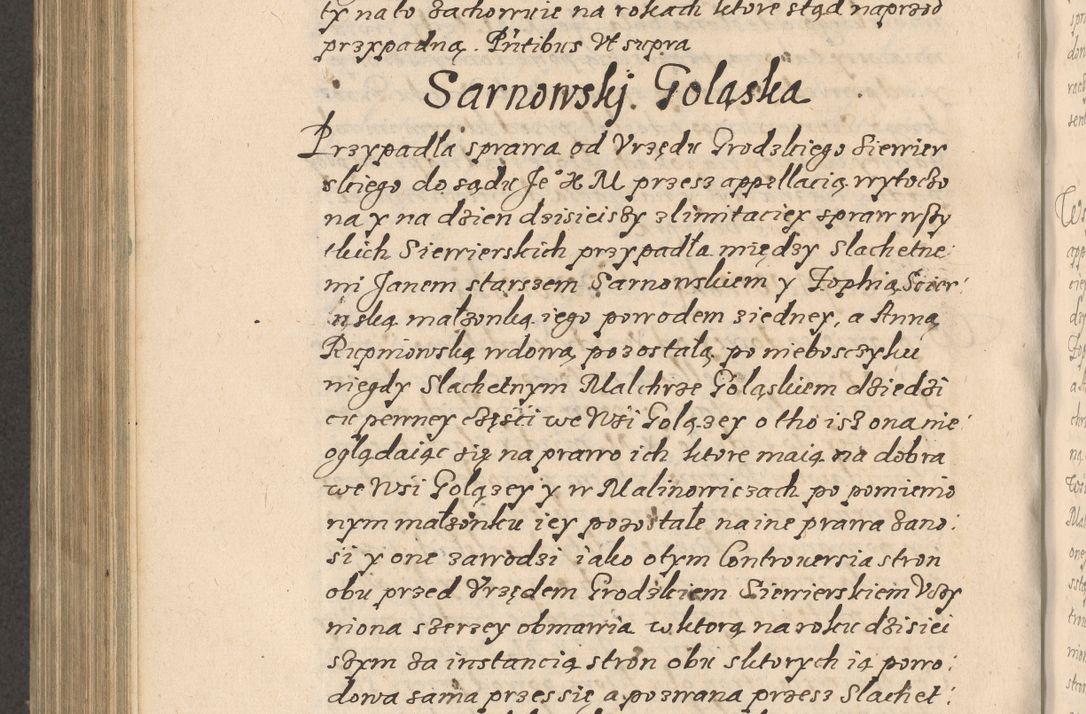 ty na to zachownie na rokach ktore stąd naprzod
przypadną. Pntibus Vt supra
Sarnowskj. Goląska
Przypadla sprawa od Vrzędu Grodzkiego Siewier
skiego do sądu Je° X M przesz appellacią wytoczo
na y na dzien dzisieiszy z limitaciey spraw wszy
tkich Siewierskich przypadla między Slachetne
mi Janem starszem Sarnowskiem y Zophią Scier
ńską małzonką iego powodem ziedney, a Anną
Rupniowską wdową pozostałą po nieboszczyku
niegdy Slachetnym Malchrze Goląskiem dziedzi
cu pewney części we Wsi Golązey o tho isz ona nie
oglądaiąc się na prawo ich ktore maią na dobra
we Wsi Golązey y w Malinowiczach po pomienio
nym małzonku iey pozostałe na ine prawa zano:
si y one zawodzi iako o tym Controuersia stron
obu przed Vrzędem Grodzkiem Siewierskiem Vczy
niona szerzey obmawia w ktorą na roku dzisiei
szym za instancią stron obu sktorych ią powo:
dowa sama przes się a pozwana przesz Slachet: